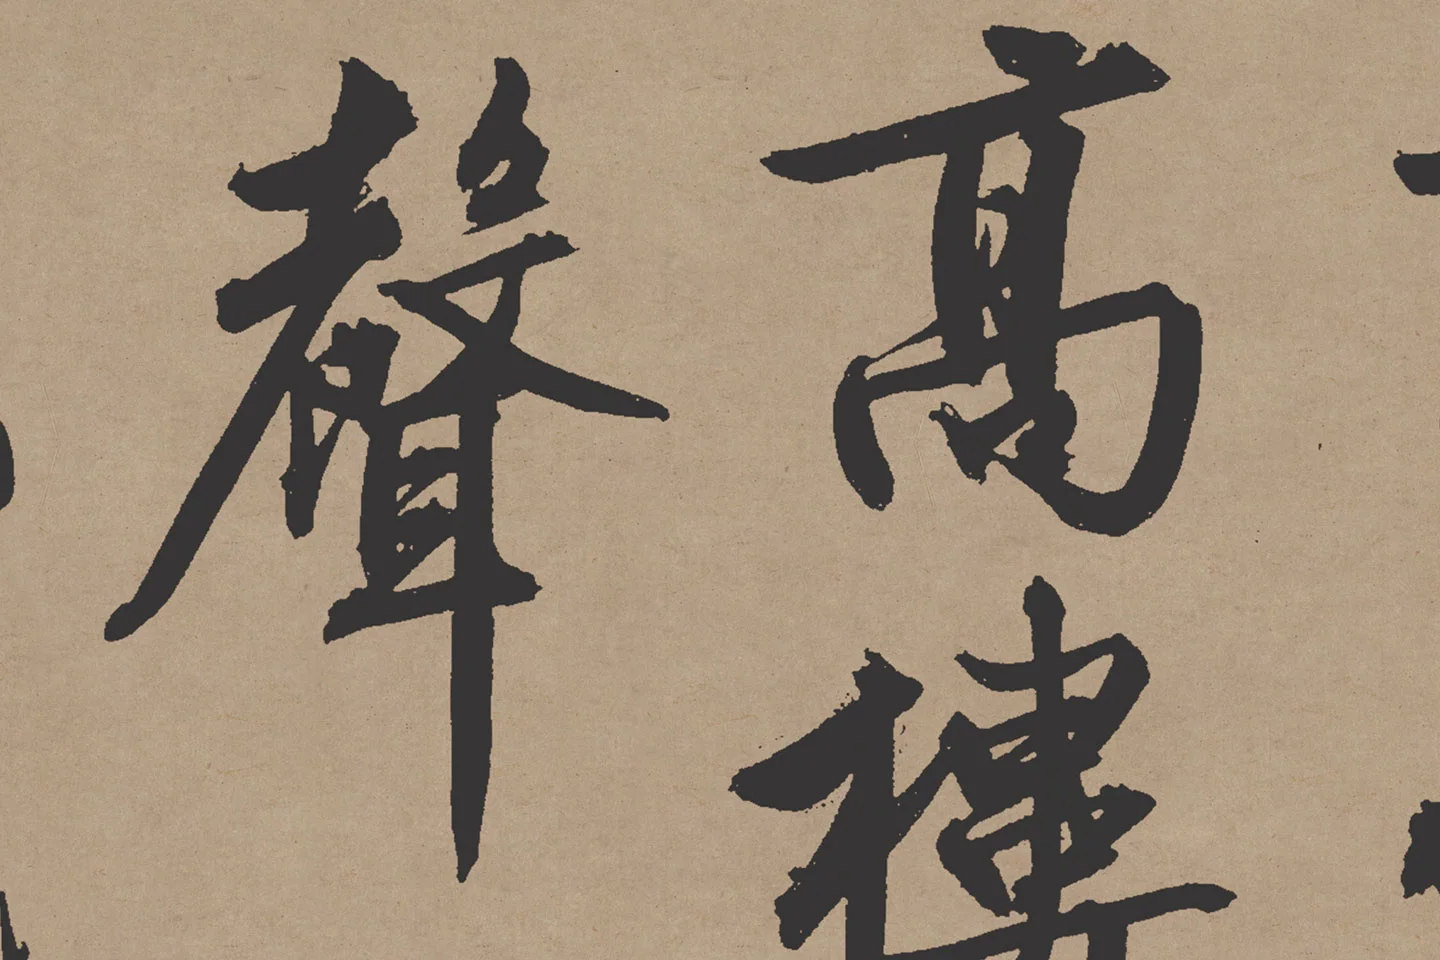 高樓
聲